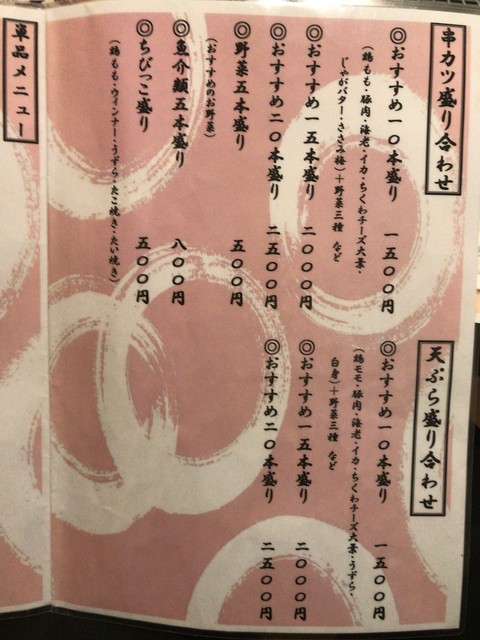 串カツ盛り合わせ
◎おすすめ一〇本盛り 一五〇〇円
(鶏もも・豚肉・海老・イカ・ちくわチーズ大葉・
じゃがバター・ささみ梅)+野菜三種 など
◎おすすめ一五本盛り 二〇〇〇円
◎おすすめ二〇本盛り 二五〇〇円
◎野菜五本盛り 五〇〇円
(おすすめのお野菜)
◎魚介類五本盛り 八〇〇円
◎ちびっこ盛り 五〇〇円
(鶏もも・ウィンナー・うずら・たこ焼き・たい焼き)
天ぷら盛り合わせ
◎おすすめ一〇本盛り 一五〇〇円
(鶏モモ・豚肉・海老・イカ・ちくわチーズ大葉・うずら・
白身)+野菜三種 など
◎おすすめ一五本盛り 二〇〇〇円
◎おすすめ二〇本盛り 二五〇〇円
単品メニュー